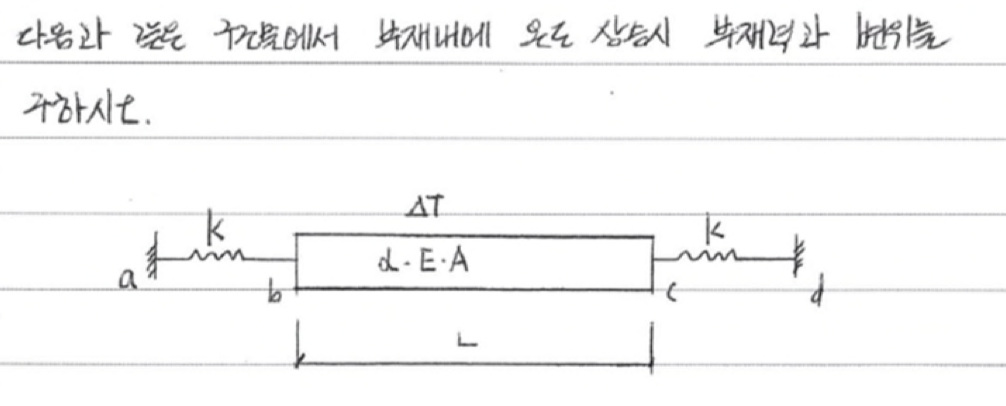 다음과 같은 구조물에서 부재내에 온도 상승시 부재력과 변위를
구하시오.
ΔT
k
k
α·E·A
a
b
c
d
L